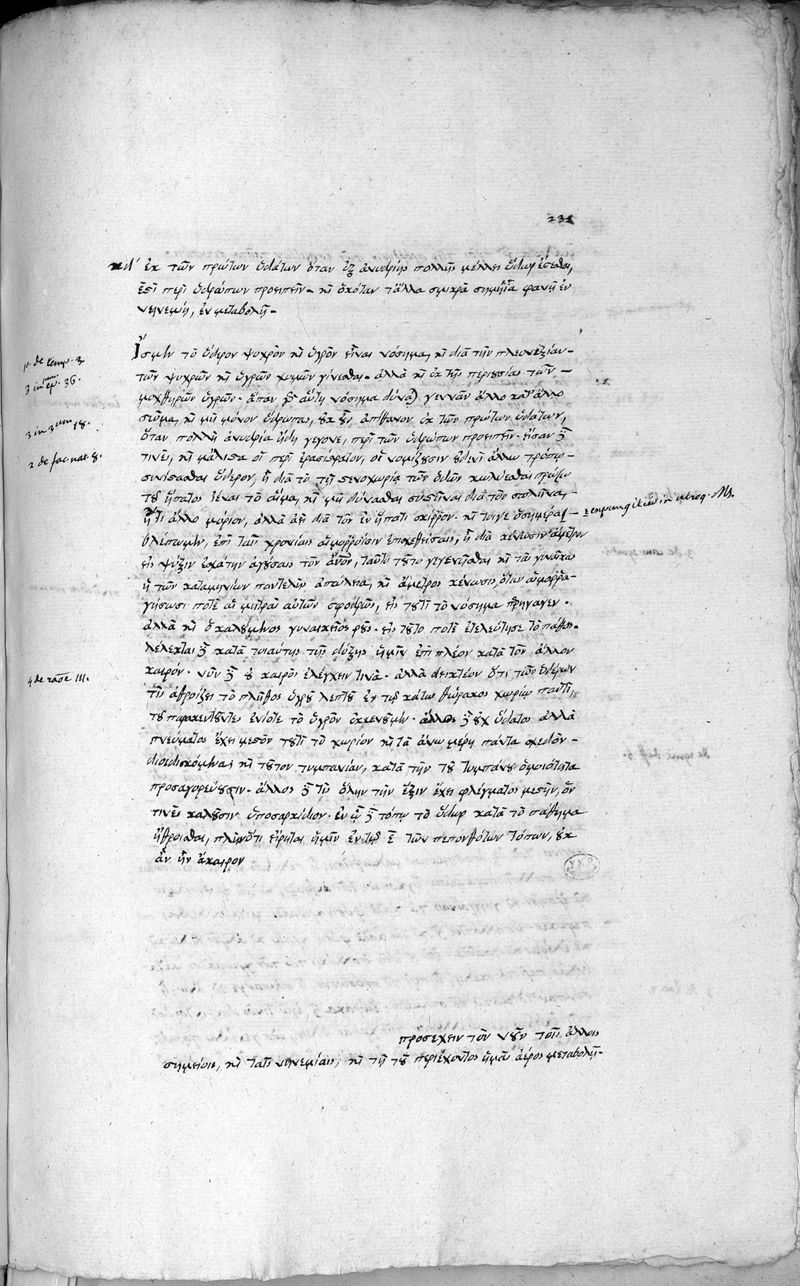 231
κδ´ ἐκ τῶν πρώτων ὑδάτων ὅταν ἐξ ἀνυδρίης πολλῆς μέλλει ὕδωρ ἔσεσθαι,
ἔστι περὶ ὑδρώπων προειπεῖν. καὶ ὁκόταν τἆλλα σμικρὰ σημήϊα φανῇ ἐν
νηνεμίῃ, ἐν μεταβολῇ.
Ἴσμεν τὸ ὕδερον ψυχρὸν καὶ ὑγρὸν εἶναι νόσημα, καὶ διὰ τὴν πλεονεξίαν
τῶν ψυχρῶν καὶ ὑγρῶν χυμῶν γίνεσθαι. ἀλλὰ καὶ ἐκ τῆς περιουσίας τῶν
μοχθηρῶν ὑγρῶν. ἅπαν γὰρ αὕτη νόσημα δύναται γεννᾶν ἄλλο κατ' ἄλλο
σῶμα, καὶ μὴ μόνον ὕδρωπα, οὐκ ἦν ἀπίθανον ἐκ τῶν πρώτων ὑδάτων,
ὅταν πολλὴ ἀνυδρία ἤδη γέγονε, περὶ τῶν ὑδρώπων προειπεῖν. ἦσαν γάρ
τινες, καὶ μάλιστα οἱ περὶ ἐρασίστρατον, οἳ νομίζουσιν οὐδενὶ ἄλλῳ τρόπῳ
συνίστασθαι ὕδερον, ἢ διὰ τὸ τῇ στενοχωρίᾳ τῶν ὁδῶν κωλύεσθαι πρόσω
τοῦ ἥπατος ἰέναι τὸ αἷμα, καὶ μὴ δύνασθαι συστῆναι διὰ τὸν σπλῆνα,
ἤ τι ἄλλο μόριον, ἀλλὰ ἀεὶ διὰ τὸν ἐν ἥπατι σκίρρον. καί τοι γε ὁσημέραι
βλέπομεν, ἐπὶ ταῖς χρονίαις αἱμορροΐσιν ἐπισχεθείσαις, ἢ διὰ κένωσιν ἄμετρον
εἰς ψῦξιν ἐσχάτην ἀγούσαις τὸν ἄνθρωπον, ταὐτὸ τοῦτο γεγενῆσθαι καὶ ταῖς γυναιξὶν
ἢ τῶν καταμηνίων παντελὴς ἀπώλεια, καὶ ἄμετρος κένωσις, ὅταν αἱμορρα-
γήσωσί ποτε αἱ μῆτραι αὐτῶν σφοδρῶς, εἰς τουτὶ τὸ νόσημα περιήγαγεν.
ἀλλὰ καὶ ὁ καλούμενος γυναικεῖος ῥοῦς, εἰς τοῦτο ποτὲ ἐτελεύτησε τὸ πάθος.
λέλεκται γὰρ κατὰ τοιαύτης τῆς δόξης ἡμῖν ἐπὶ πλέον κατὰ τὸν ἄλλον
καιρόν. νῦν γὰρ οὐ καιρὸς ἐλέγχειν τινά. ἀλλὰ δεικτέον ὅτι τῶν ὑδέρων
τὶς ἀθροίζει τὸ πλῆθος ὑγροῦ λεπτοῦ ἐν τῷ κάτω θώρακος χωρίῳ παντί,
τοῦ παρακεντοῦντες ἐνίοτε τὸ ὑγρὸν ἐκκενοῦμεν. ἄλλος γὰρ οὐχ ὕδατος ἀλλὰ
πνεύματος ἔχει μεστὸν τουτὶ τὸ χωρίον καὶ τὰ ἄνω μέρη πάντα σχεδὸν
διοιδισκόμενα, καὶ τοῦτον τυμπανίαν, κατὰ τὴν τοῦ τυμπάνου ὁμοιότητα
προσαγορεύουσιν. ἄλλος γάρ τις ὅλην τὴν ἕξιν ἔχει φλέγματος μεστήν, ὅν
τινες καλοῦσιν ὑποσαρκίδιον. ἐν ᾧ γὰρ τόπῳ τὸ ὕδωρ κατὰ τὸ πάθημα
ἤθροισθαι, πλὴν ὅτι εἴρηται ἡμῖν ἐν τῷ ε τῶν πεπονθότων τόπων, οὐκ
ἂν ἦν ἄκαιρον
προσέχειν τὸν νοῦν τοῖς ἄλλοις
σημείοις, καὶ ταῖς νηνεμίαις, καὶ τῇ τοῦ περιέχοντος ἡμᾶς ἀέρος μεταβολῇ.
p. de temp. 3.
3 in epi. 36.
3 in 3 um 18.
2 de fac nat 8.
4 de rāōe 111.